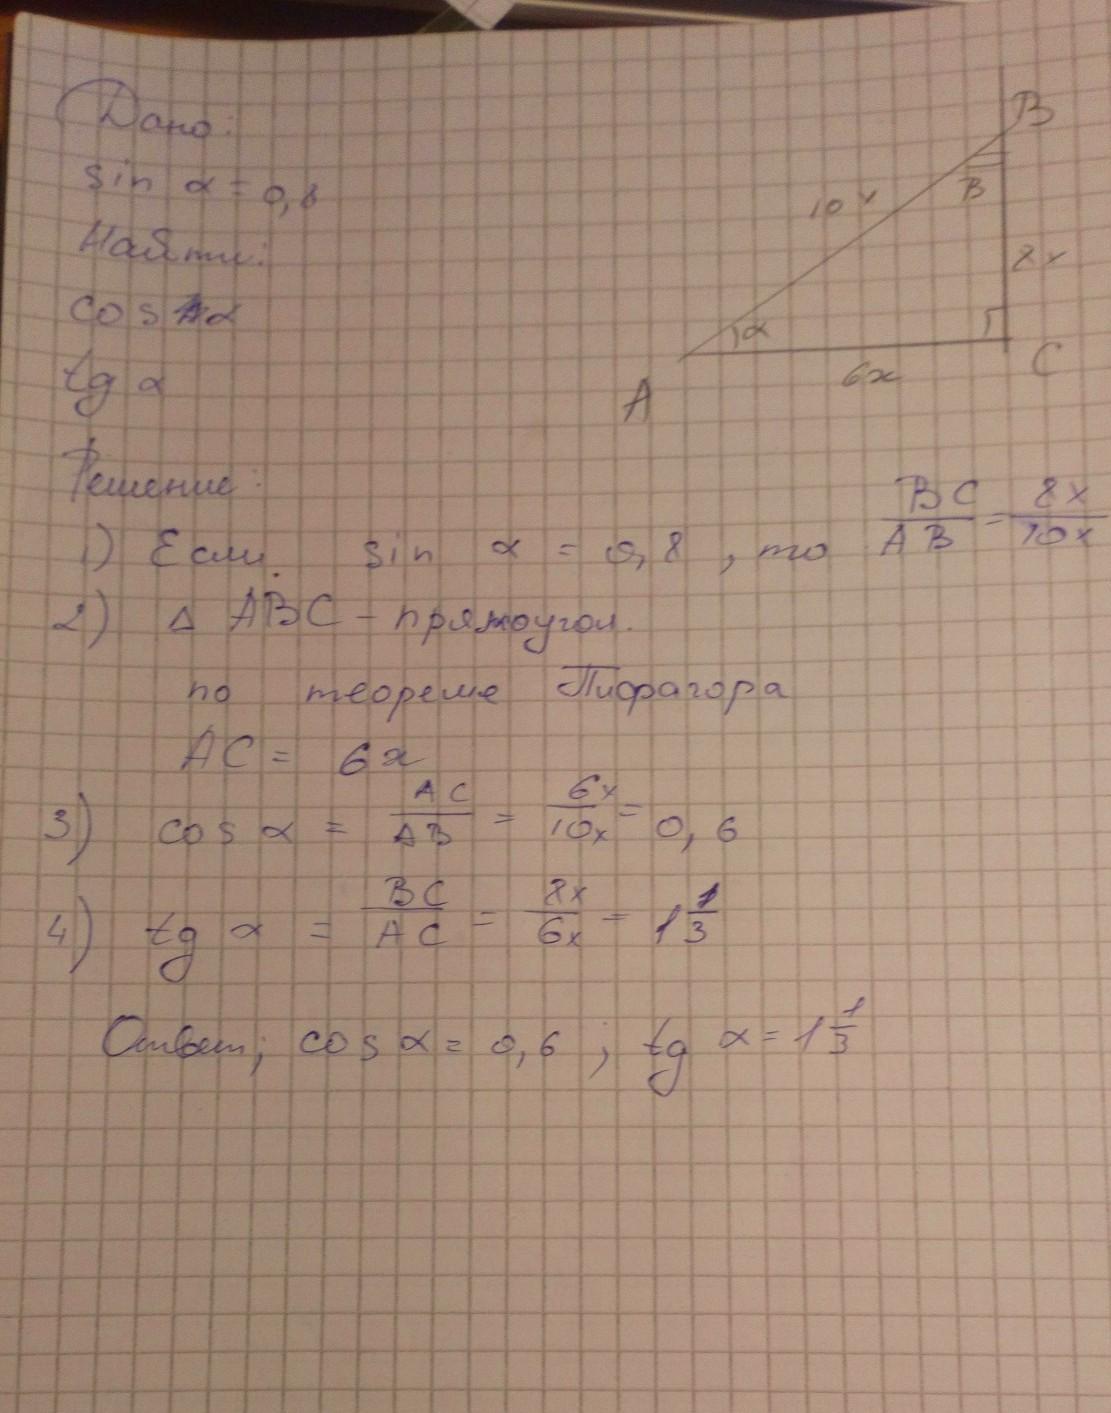 Дано:
sin α = 0,8
Найти:
cos α
tg α
B
10x
β
8x
α
6x
A
C
Решение:
1) Если sin α = 0,8, то BC/AB = 8x/10x
2) Δ ABC – прямоугол.
по теореме Пифагора
AC = 6x
3) cos α = AC/AB = 6x/10x = 0,6
4) tg α = BC/AC = 8x/6x = 1 1/3
Ответ; cos α = 0,6 ; tg α = 1 1/3